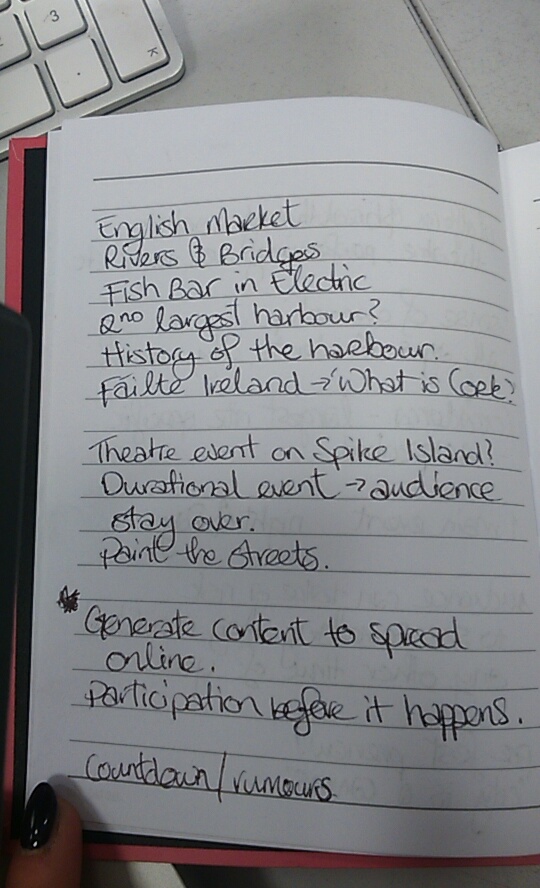 3
English Market
Rivers & Bridges
Fish Bar in Electric
2nd largest harbour?
History of the harbour.
Fáilte Ireland → 'What is Cork?'
Theatre event on Spike Island?
Durational event → audience
stay over.
Paint the streets.
* Generate content to spread
online.
Participation before it happens.
Countdown/rumours